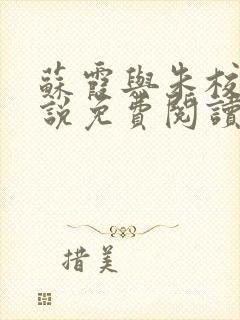 蘇霞與朱校
說免費閱讀
措美